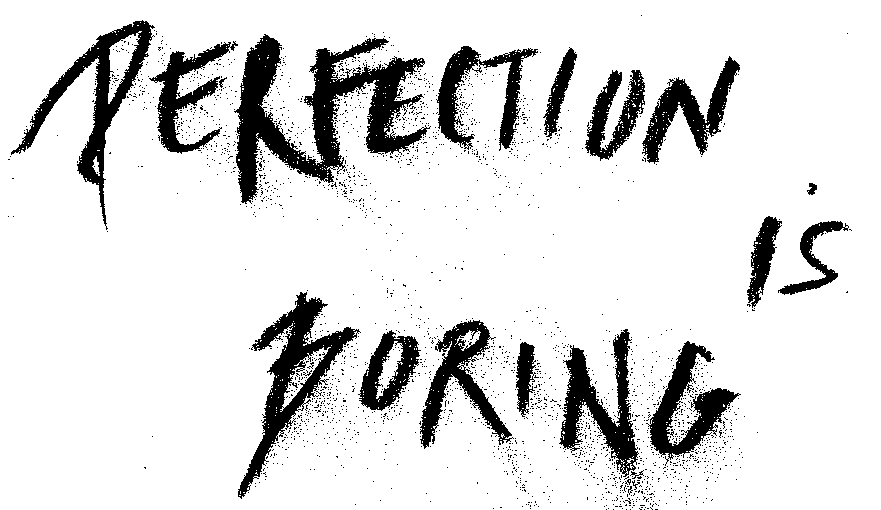 PERFECTION
is
BORING